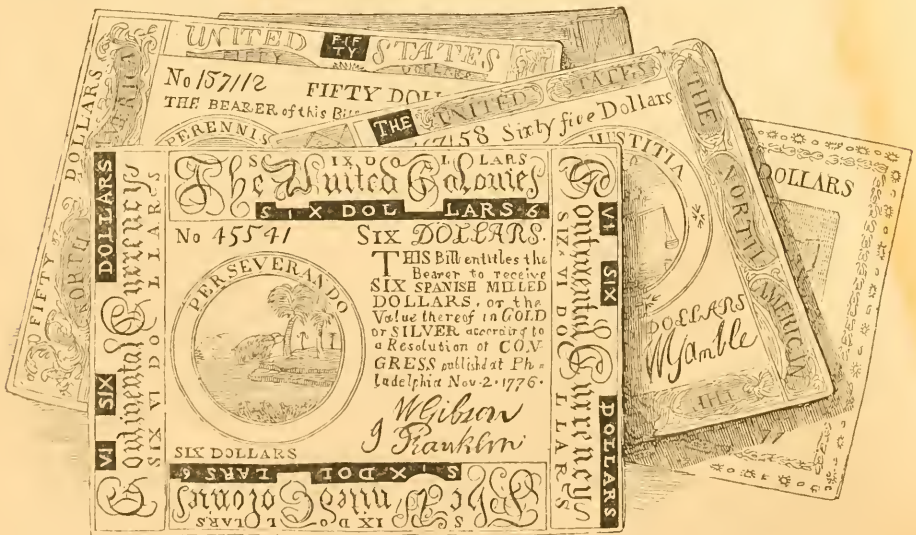 UNITED FIF TY STATES
FIFTY DOLLARS
FIFTY DOLLARS
No 157/12 FIFTY DOL
THE BEARER of this Bil
PERENNIS
THE UNITED STATES
158 Sixty five Dollars
JUSTITIA
THE
NORTH
AMERICAN
DOLLARS
WGamble
DOLLARS
SIX DOLLARS
The United Colonies
SIX DOL LARS 6
No 45541 SIX DOLLARS.
PERSEVERANDO
THIS Bill entitles the
Bearer to receive
SIX SPANISH MILLED
DOLLARS, or the
Value thereof in GOLD
or SILVER according to
a Resolution of CON
GRESS published at Ph
ladelphia Nov. 2. 1776.
WGibson
J Franklin
SIX DOLLARS
VI SIX DOLLARS
Continental Currency
SIX VI DOLLARS
Continental Currency
SIX VI DOLLARS
VI SIX DOLLARS
SIX DOL LARS 6
The United Colonies
SIX DOLLARS